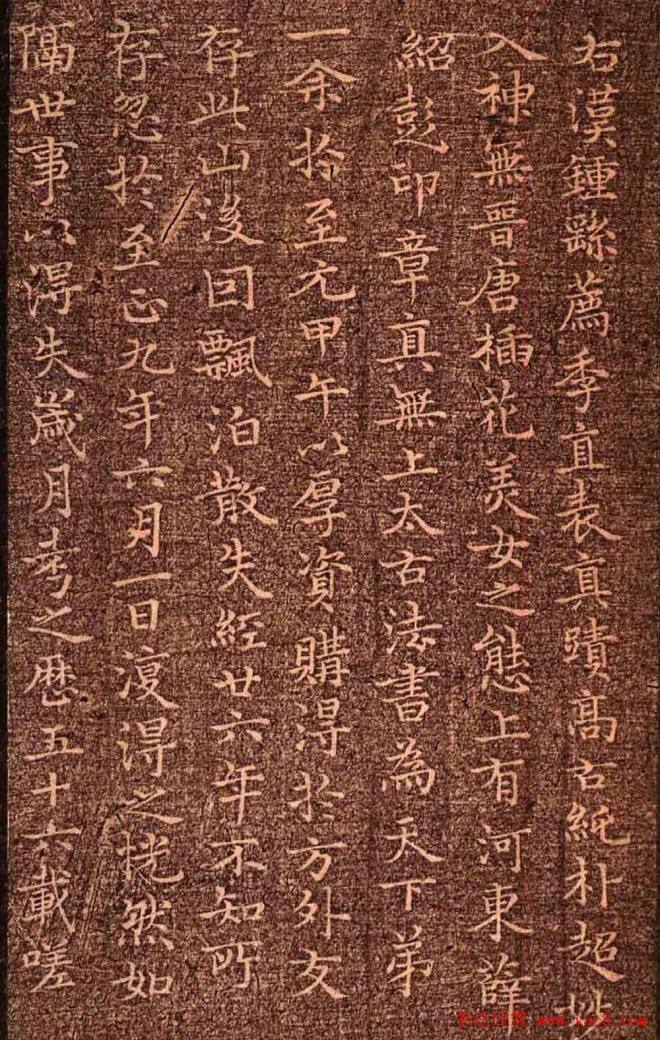 右漢鍾繇薦季直表真蹟高古純朴超妙
入神無晉唐插花美女之態上有河東薛
紹彭印章真無上太古法書為天下第
一余於至元甲午以厚資購得於方外友
存此山後回飄泊散失經廿六年不知所
存忽於至正九年六月一日復得之恍然如
隔世事以得失歲月考之歷五十六載嗟